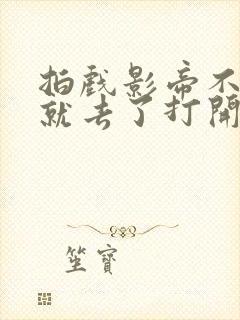 拍戏影帝不
就去了打開
笙寶